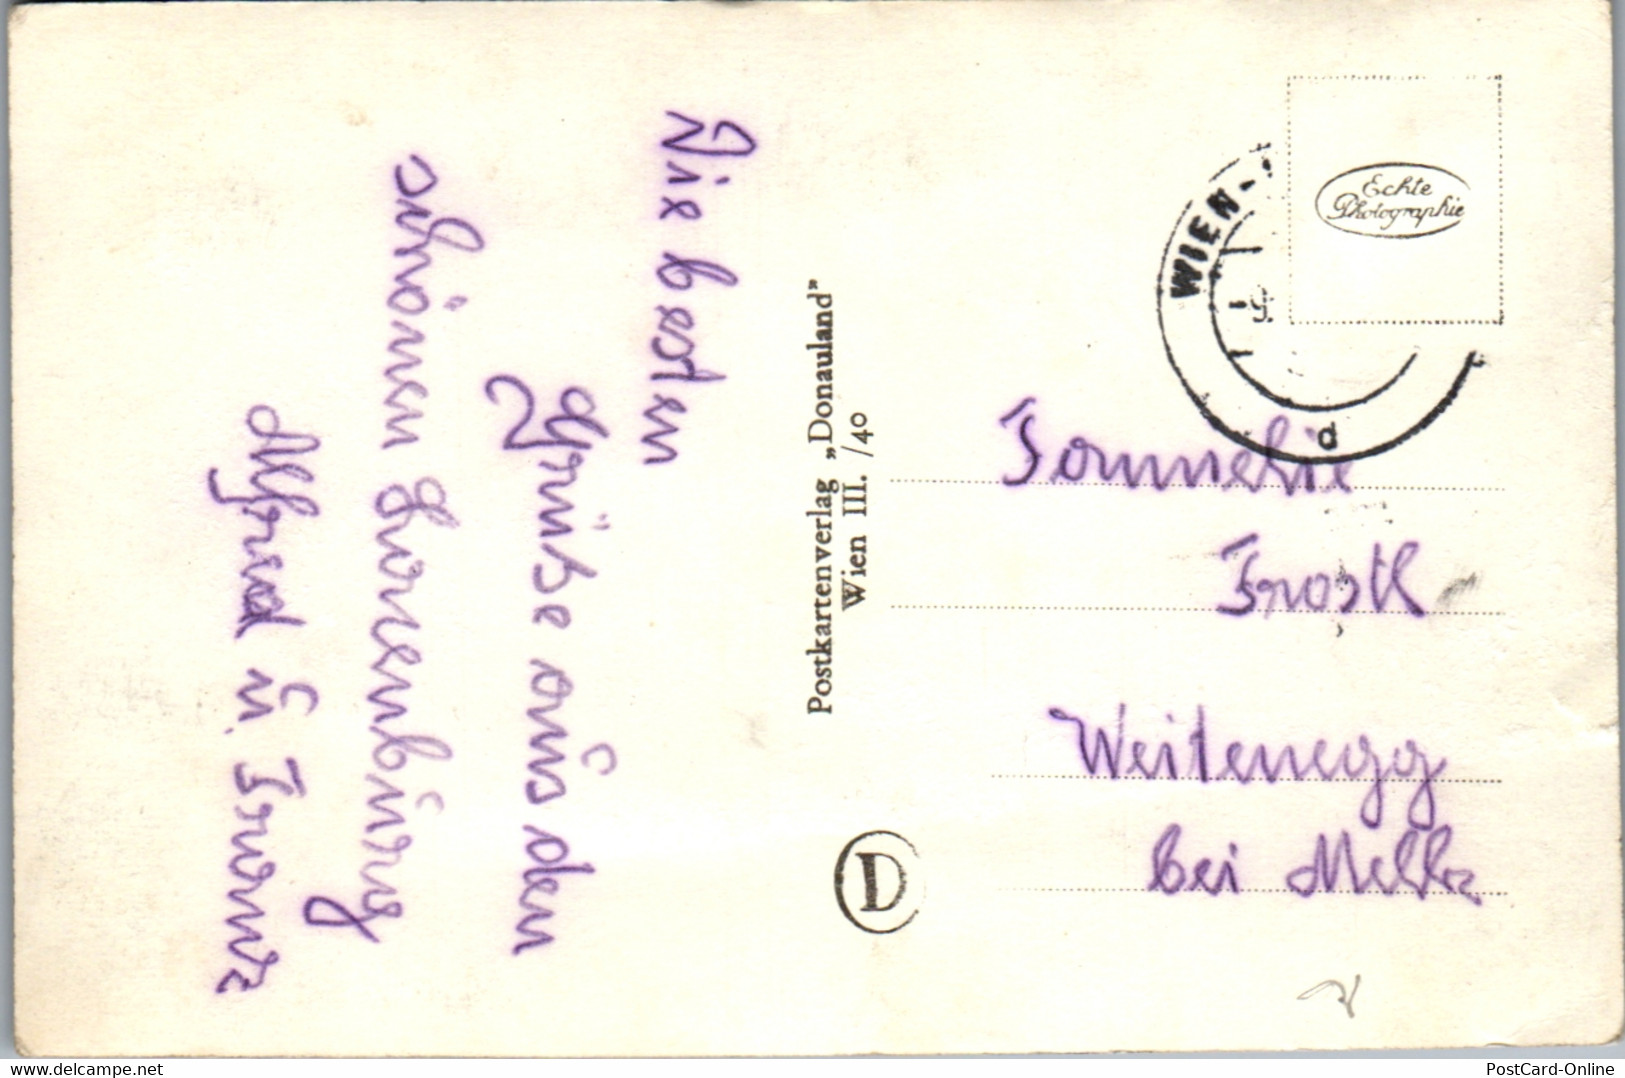 Die besten
Grüße aus den
schönen Laxenburg
Alfred u. Franz
Postkartenverlag „Donauland”
Wien III. /40
D
WIEN-
d
Echte
Photographie
Frostl
Weitenegg
bei Melk
PostCard-Online
delcampe.net